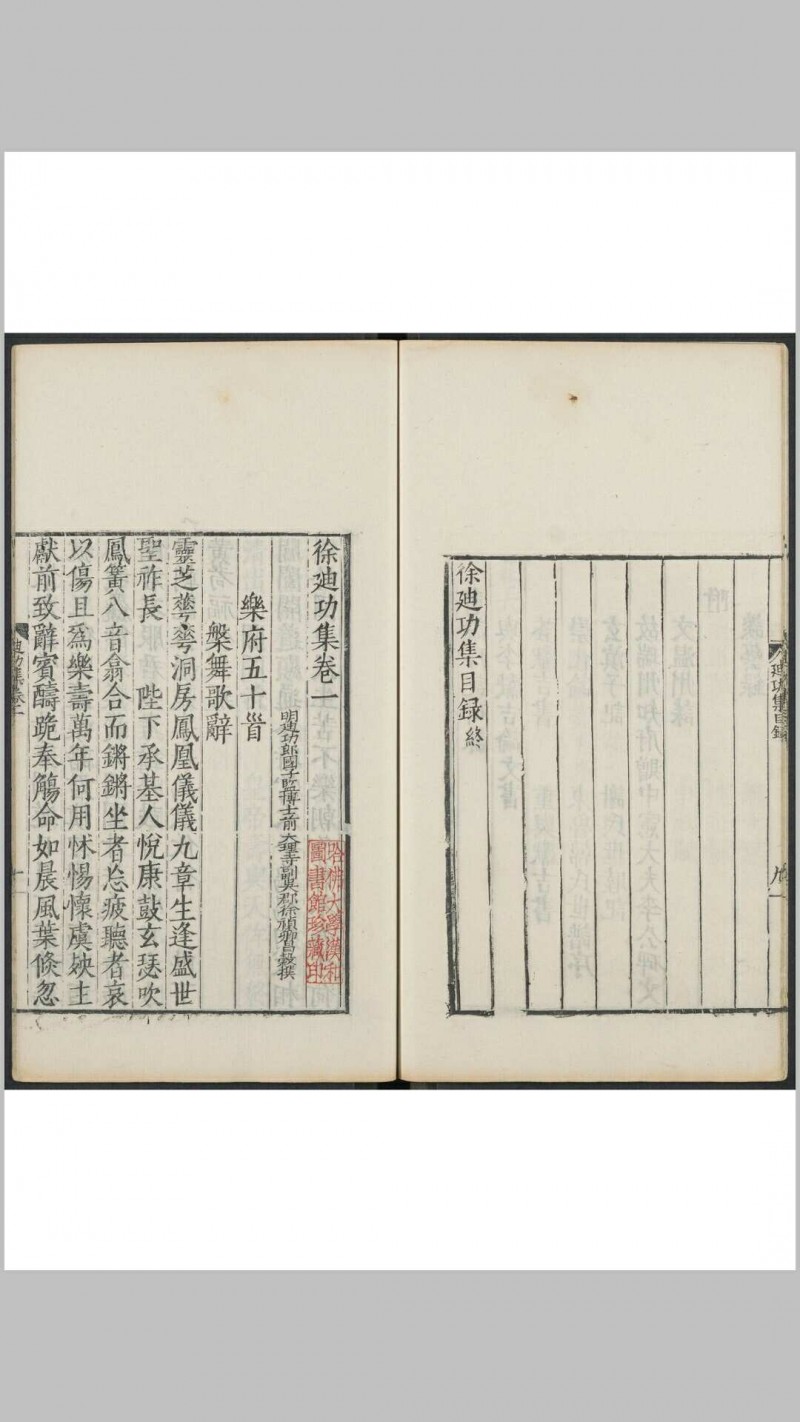 徐迪功集目録終
迪功集目録
徐迪功集卷一
明迪功郎國子監博士前大理寺副吳郡徐禎卿昌穀撰
哈佛大學漢和
圖書館珍藏印
樂府五十首
槃舞歌辭
靈芝蕐蕐洞房鳳凰儀儀九章生逢盛世
聖祚長 陛下承基人悅康鼓玄瑟吹
鳳簧八音翕合而鏘鏘坐者忘疲聽者哀
以傷且爲樂壽萬年何用怵惕懷虞殃主
獻前致辭賓醻跪奉觴命如晨風葉倏忽
迪功集卷一